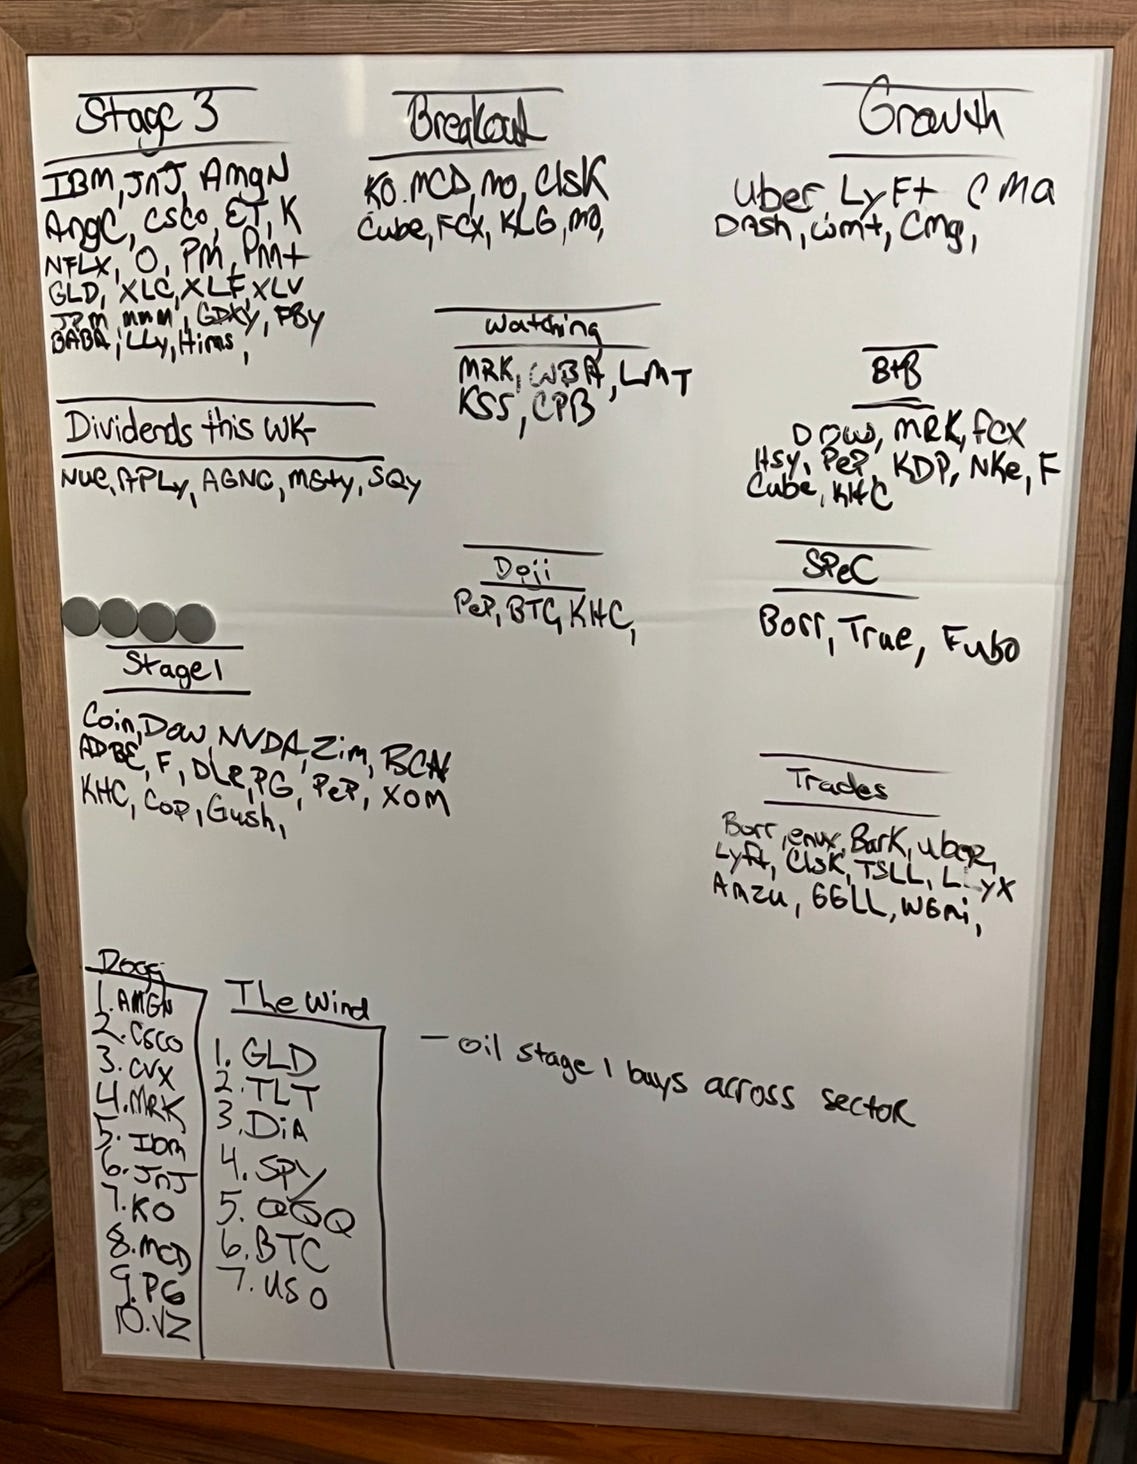 Stage 3
IBM, JnJ, AmgN
AngC, CSCO, ET, K
NFLX, O, PM, PMt
GLD, XLC, XLF, XLV
JPM, mmm, GDXY, FBY
BABA, LLy, Hims,
Dividends this WK-
NUE, APLy, AGNC, MSty, SQy
Stage 1
Coin, Dow, NVDA, Zim, BCAt
ADBE, F, DLR, PG, PeP, XOM
KHC, COP, Gush,
Dogs
1. AMGN
2. CSCO
3. CVX
4. MRK
5. Ibm
6. JnJ
7. KO
8. MCD
9. PG
10. VZ
The Wind
1. GLD
2. TLT
3. DiA
4. SPY
5. QQQ
6. BTC
7. USO
Breakout
KO. MCD, mo, ClsK
Cube, FCX, KLG, mo,
Watching
MRK, WBA, LMT
KSS, CPB
Doji
PeP, BTC, KHC,
- oil stage 1 buys across sector
Growth
Uber LyFt CMA
DASh, wmt, Cmg,
B+B
DOW, MRK, fCX
Hsy, PeP, KDP, NKe, F
Cube, KHC
SPeC
Borr, True, Fubo
Trades
Borr, envx, BarK, uber,
Lyft, ClsK, TSLL,
Amzu, GGLL, WGmi,